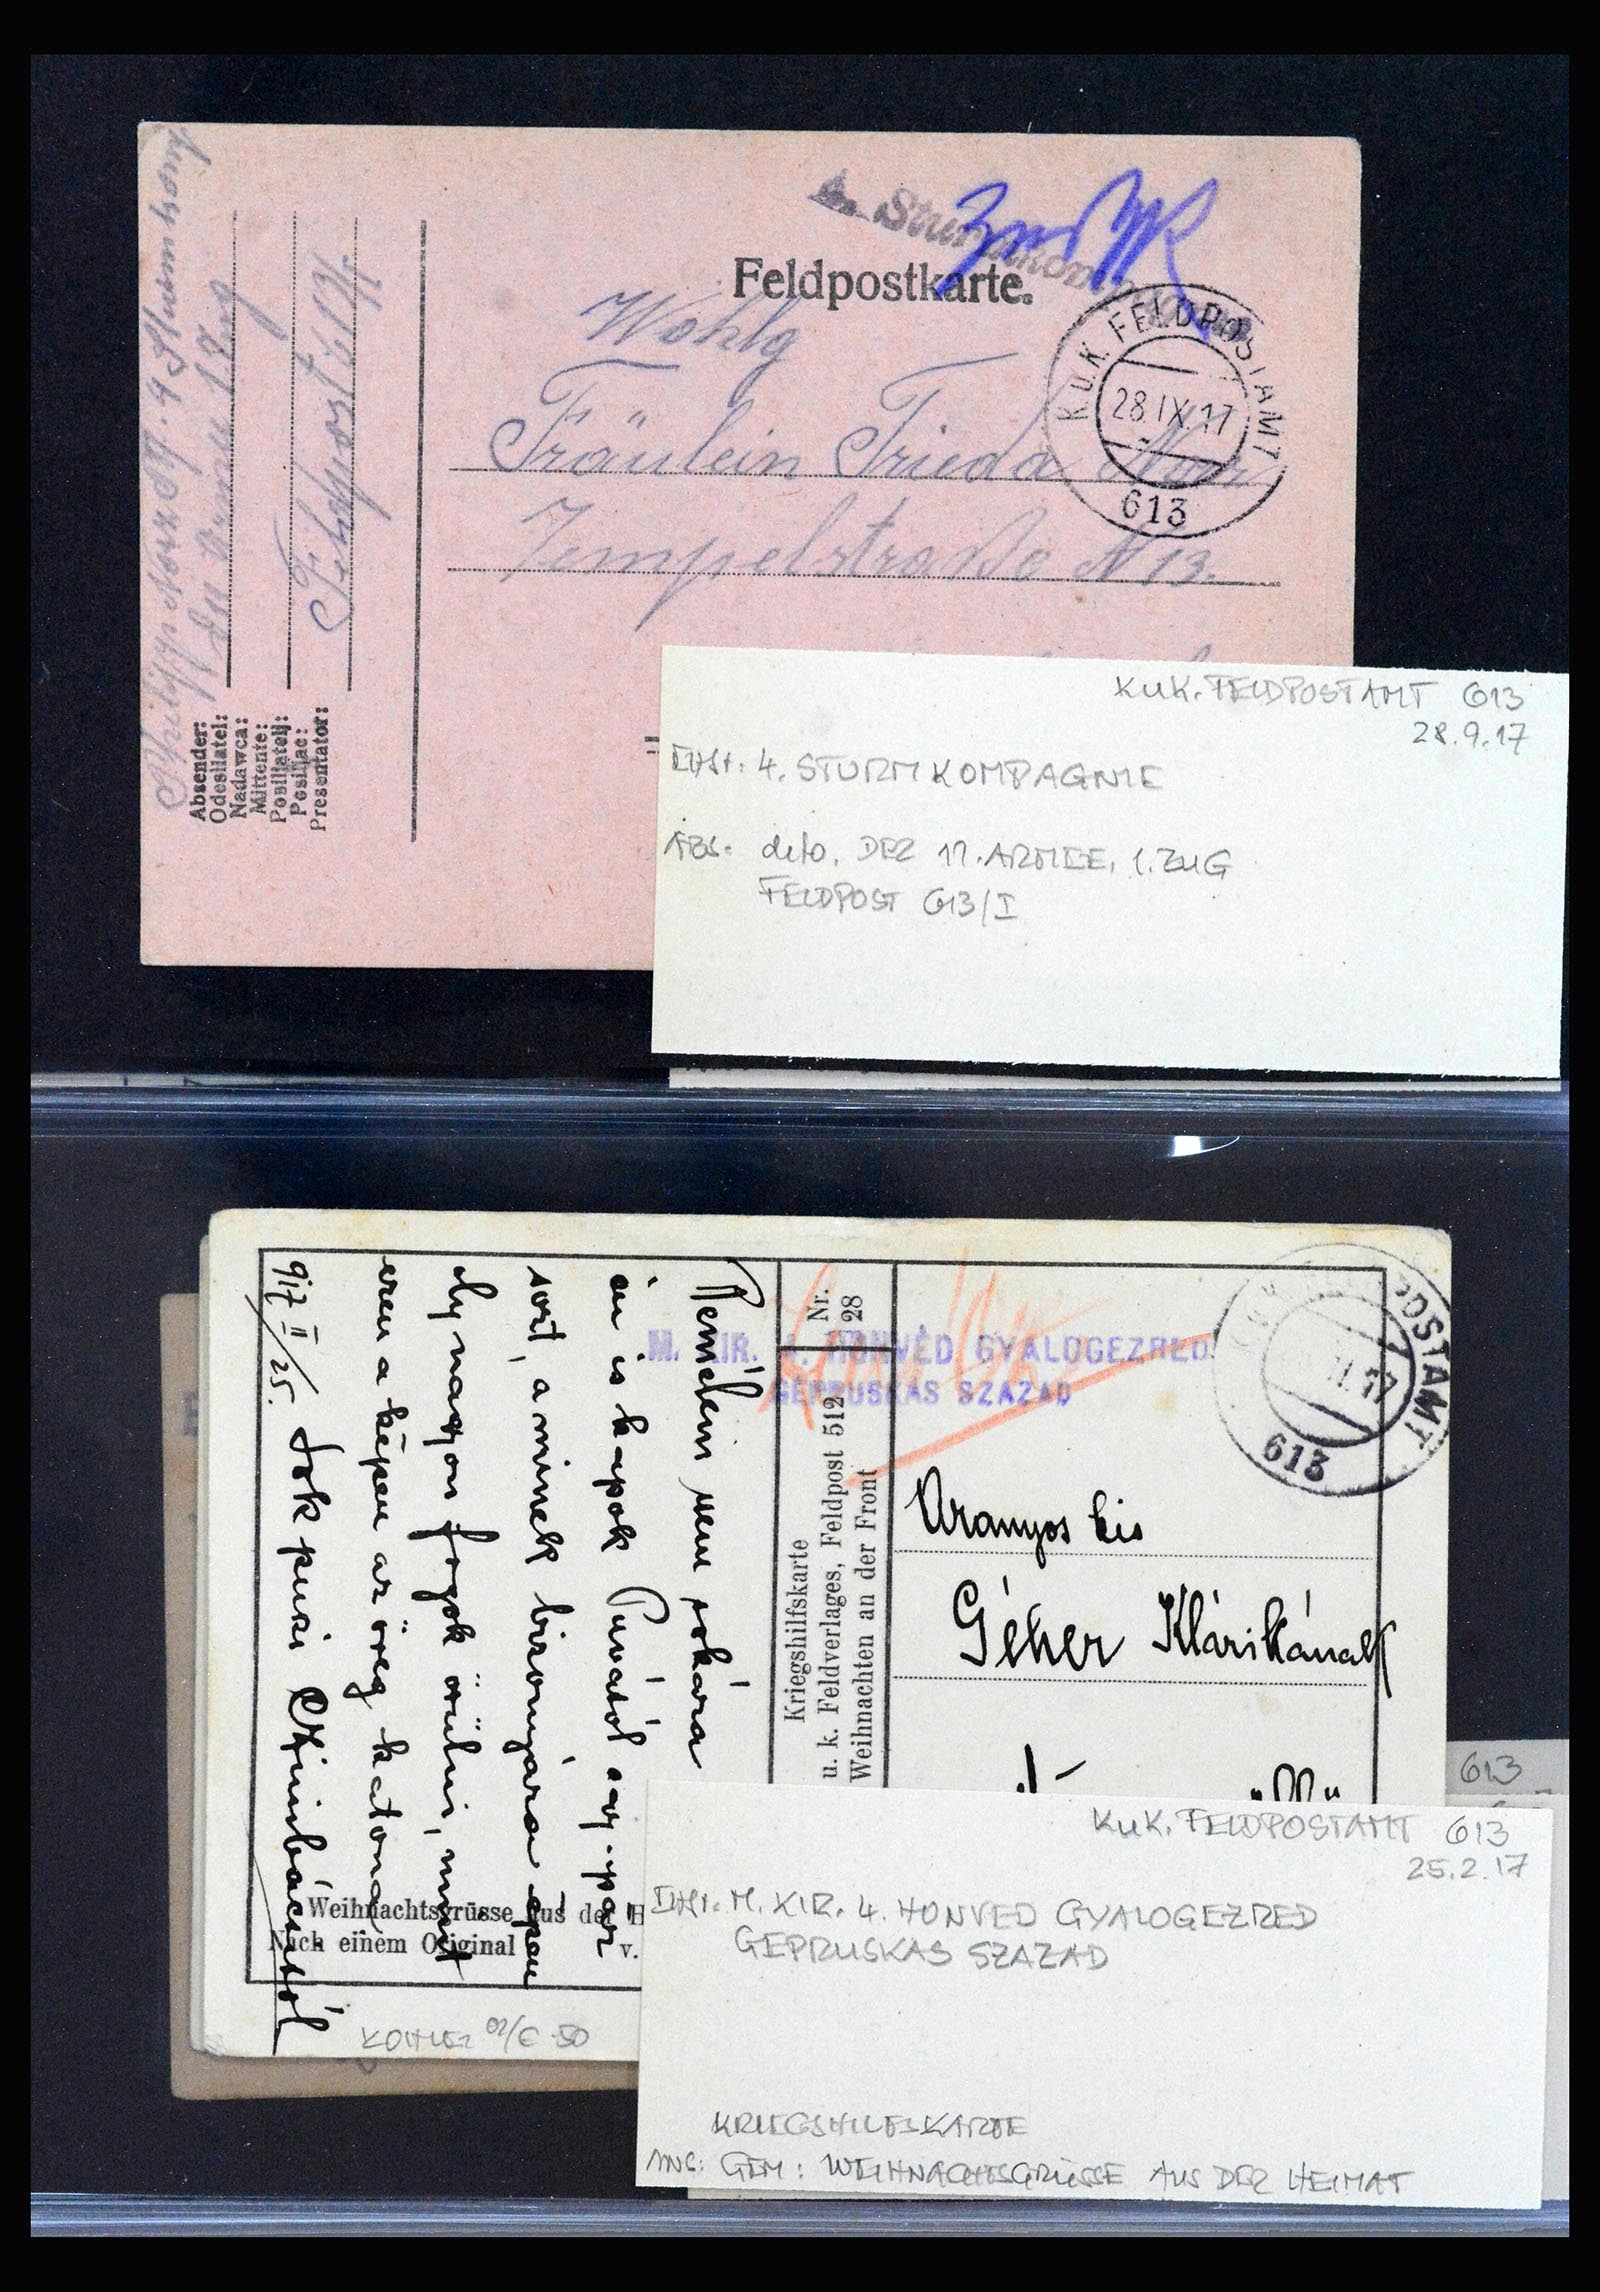 4. Sturmkompagnie
Feldpostkarte.
Wohlg
Fräulein Frieda
Tempelstraße N 13.
K.U.K. FELDPOSTAMT
28.IX.17
613
Feldpost 613/I
Absender:
Odesílatel:
Nadawca:
Mittente:
Pošiljatelj:
Posiljač:
Presentator:
K.U.K. FELDPOSTAMT 613
28.9.17
4. STURMKOMPAGNIE
ABS: deto. DER 11. ARMEE, 1. ZUG
FELDPOST 613/I
Remélem nem sokára
én is kapok Puvától egy-pár
sort, a minek bizonyára épen
oly nagyon fogok örülni, mint
ezen a képen az öreg katona
917 II/25. Sok puszi
Nr.
28
Kriegshilfskarte
u. k. Feldverlages, Feldpost 512
Weihnachten an der Front
M. KIR. 4. HONVÉD GYALOGEZRED
GÉPPUSKÁS SZÁZAD
POSTAMT
II.17
613
Aranyos kis
Géher Klárikának
Weihnachtsgrüsse aus der H
Nach einem Original v.
KOHLER 02/€ 50
613
K.U.K. FELDPOSTAMT 613
25.2.17
M. KIR. 4. HONVED GYALOGEZRED
GEPRUSKAS SZAZAD
KRIEGSHILFSKARTE
ANS: GEM: WEIHNACHTSGRÜSSE AUS DER HEIMAT